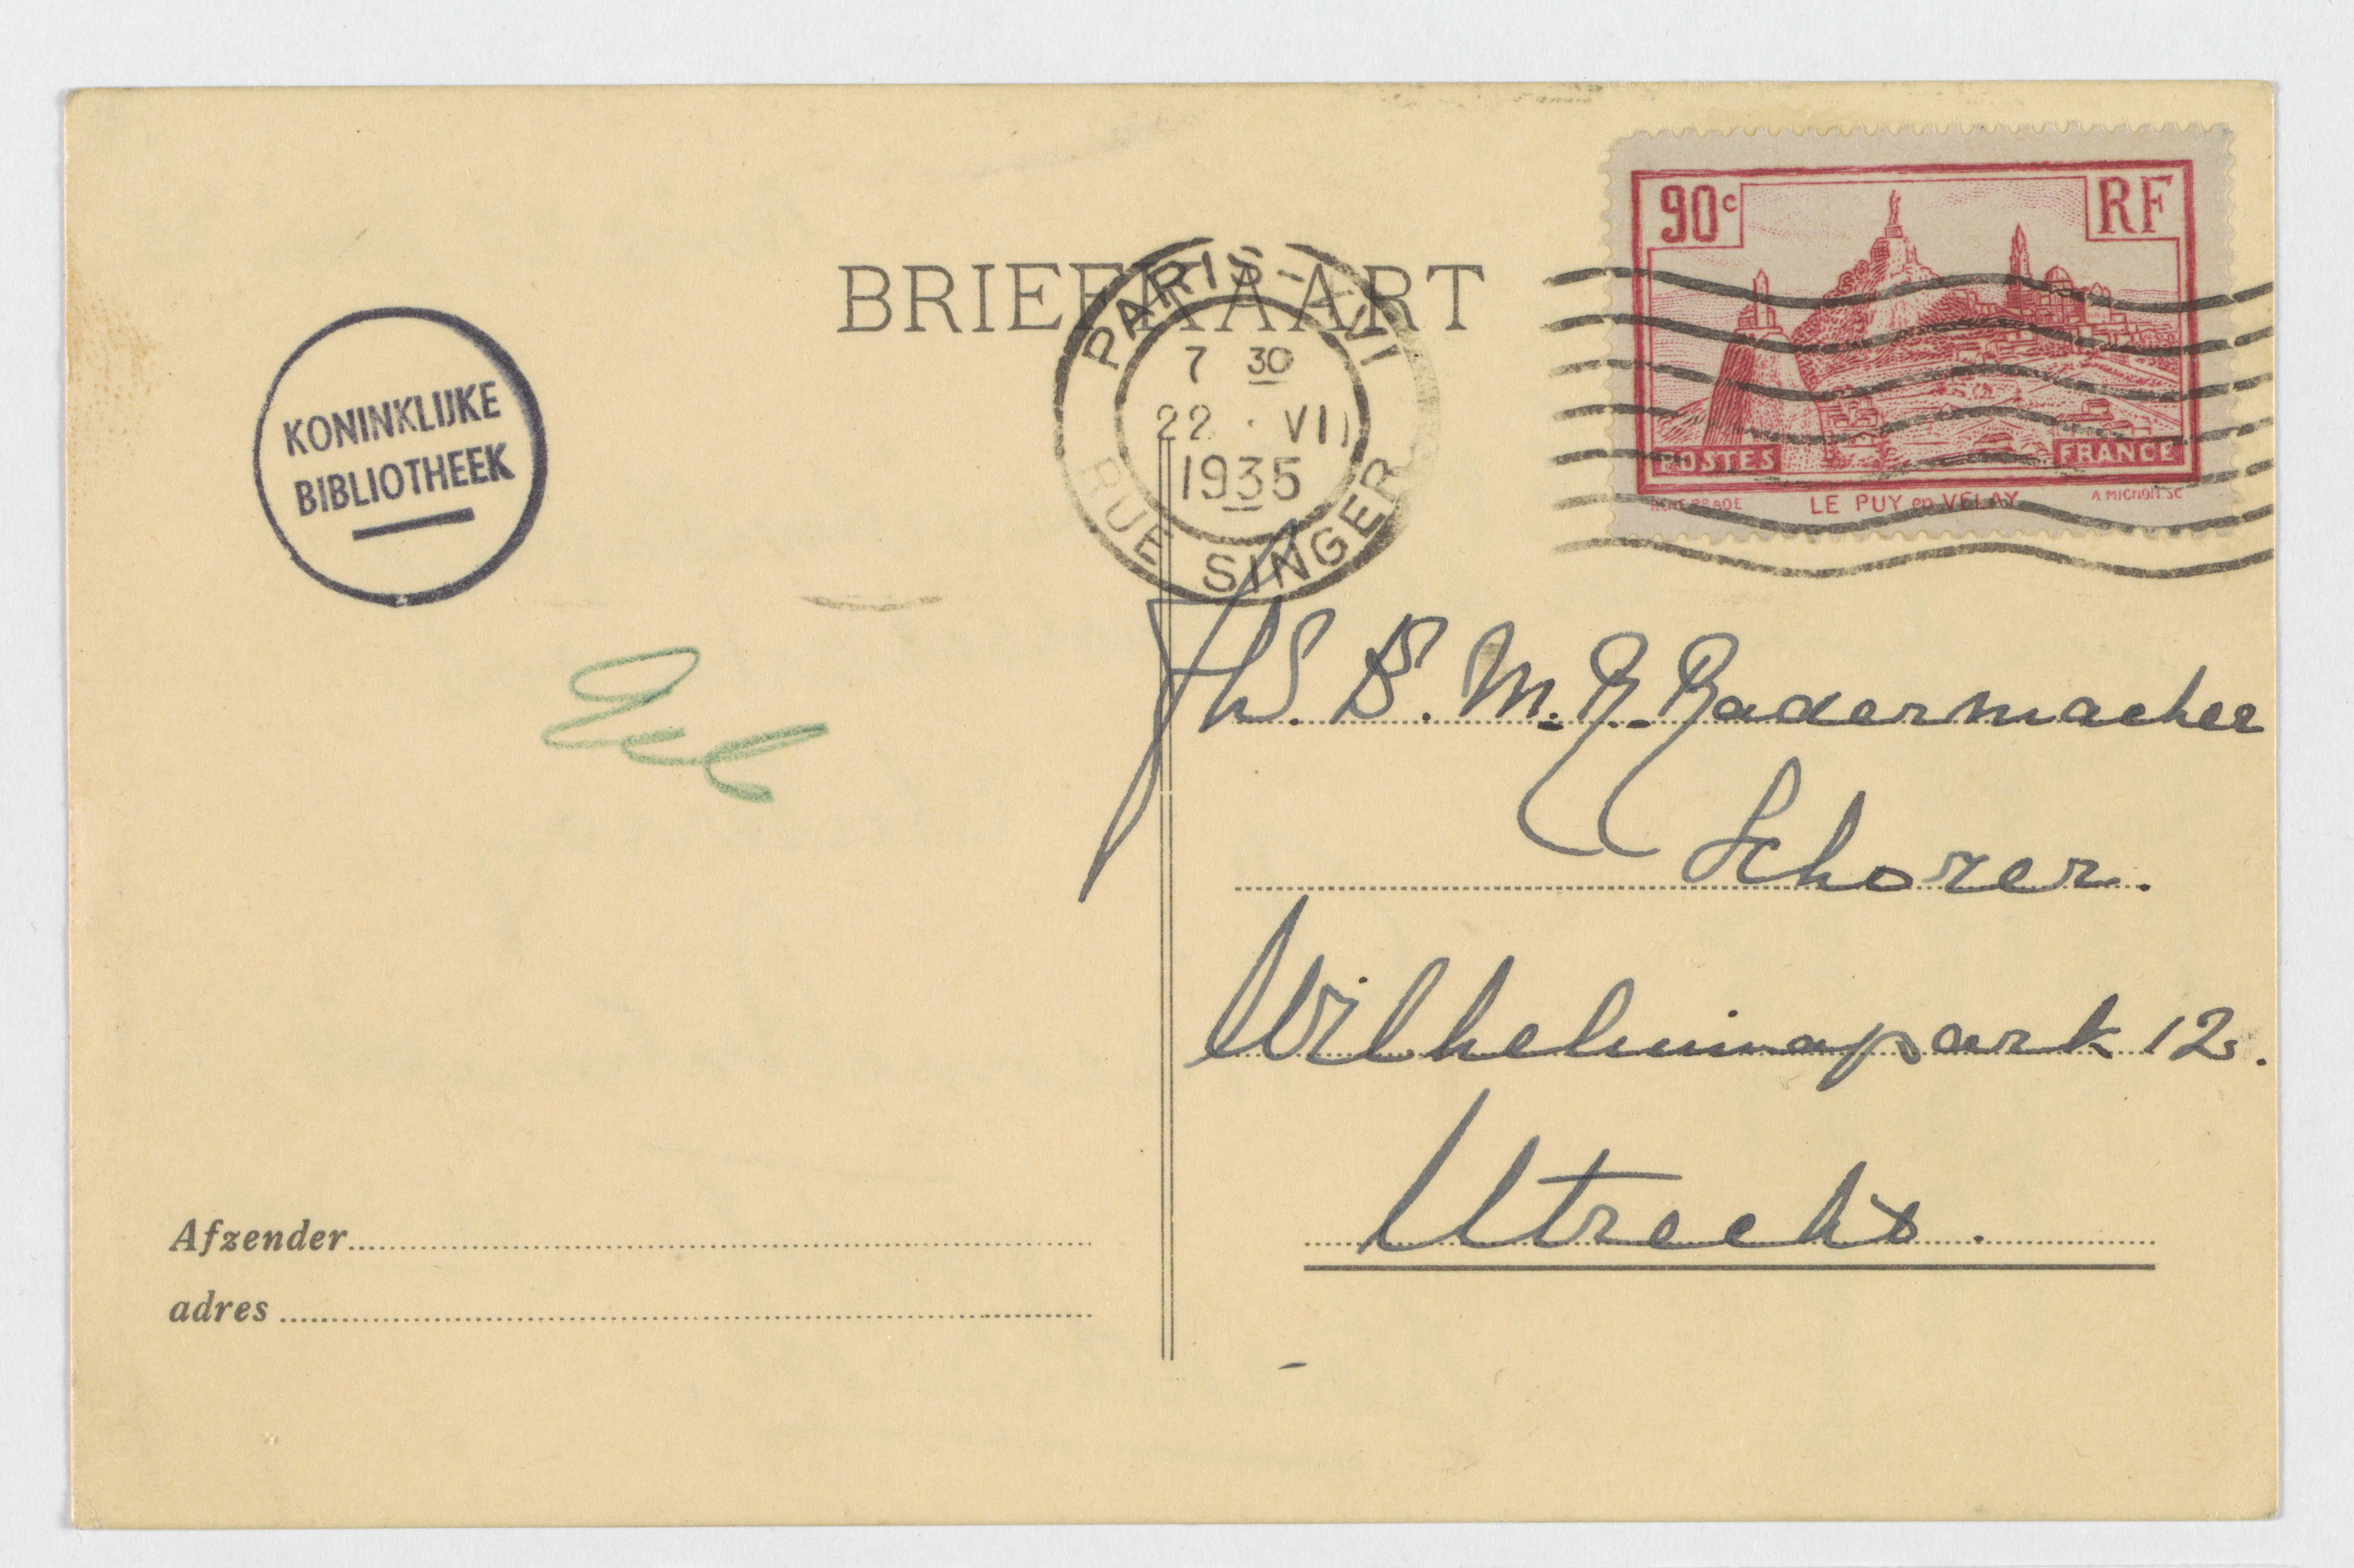 BRIEFKAART
PARIS-XVI
7 30
22 · VII
1935
RUE SINGER
90c RF
POSTES FRANCE
LE PUY en VELAY
KONINKLIJKE
BIBLIOTHEEK
Jhr. B. M. R. Radermacher
Schorer.
Wilhelminapark 12.
Utrecht.
Afzender
adres